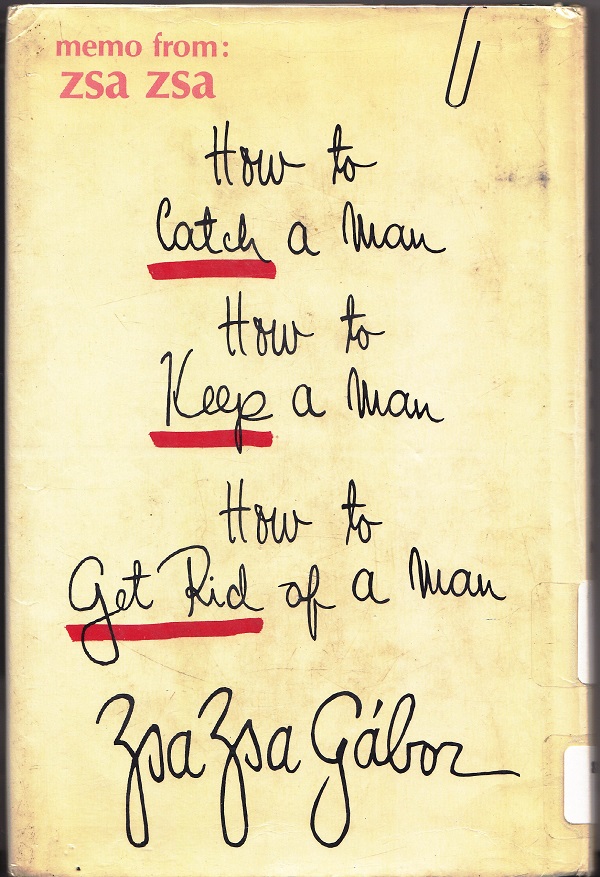 memo from:
zsa zsa
How to
Catch a Man
How to
Keep a Man
How to
Get Rid of a Man
Zsa Zsa Gábor